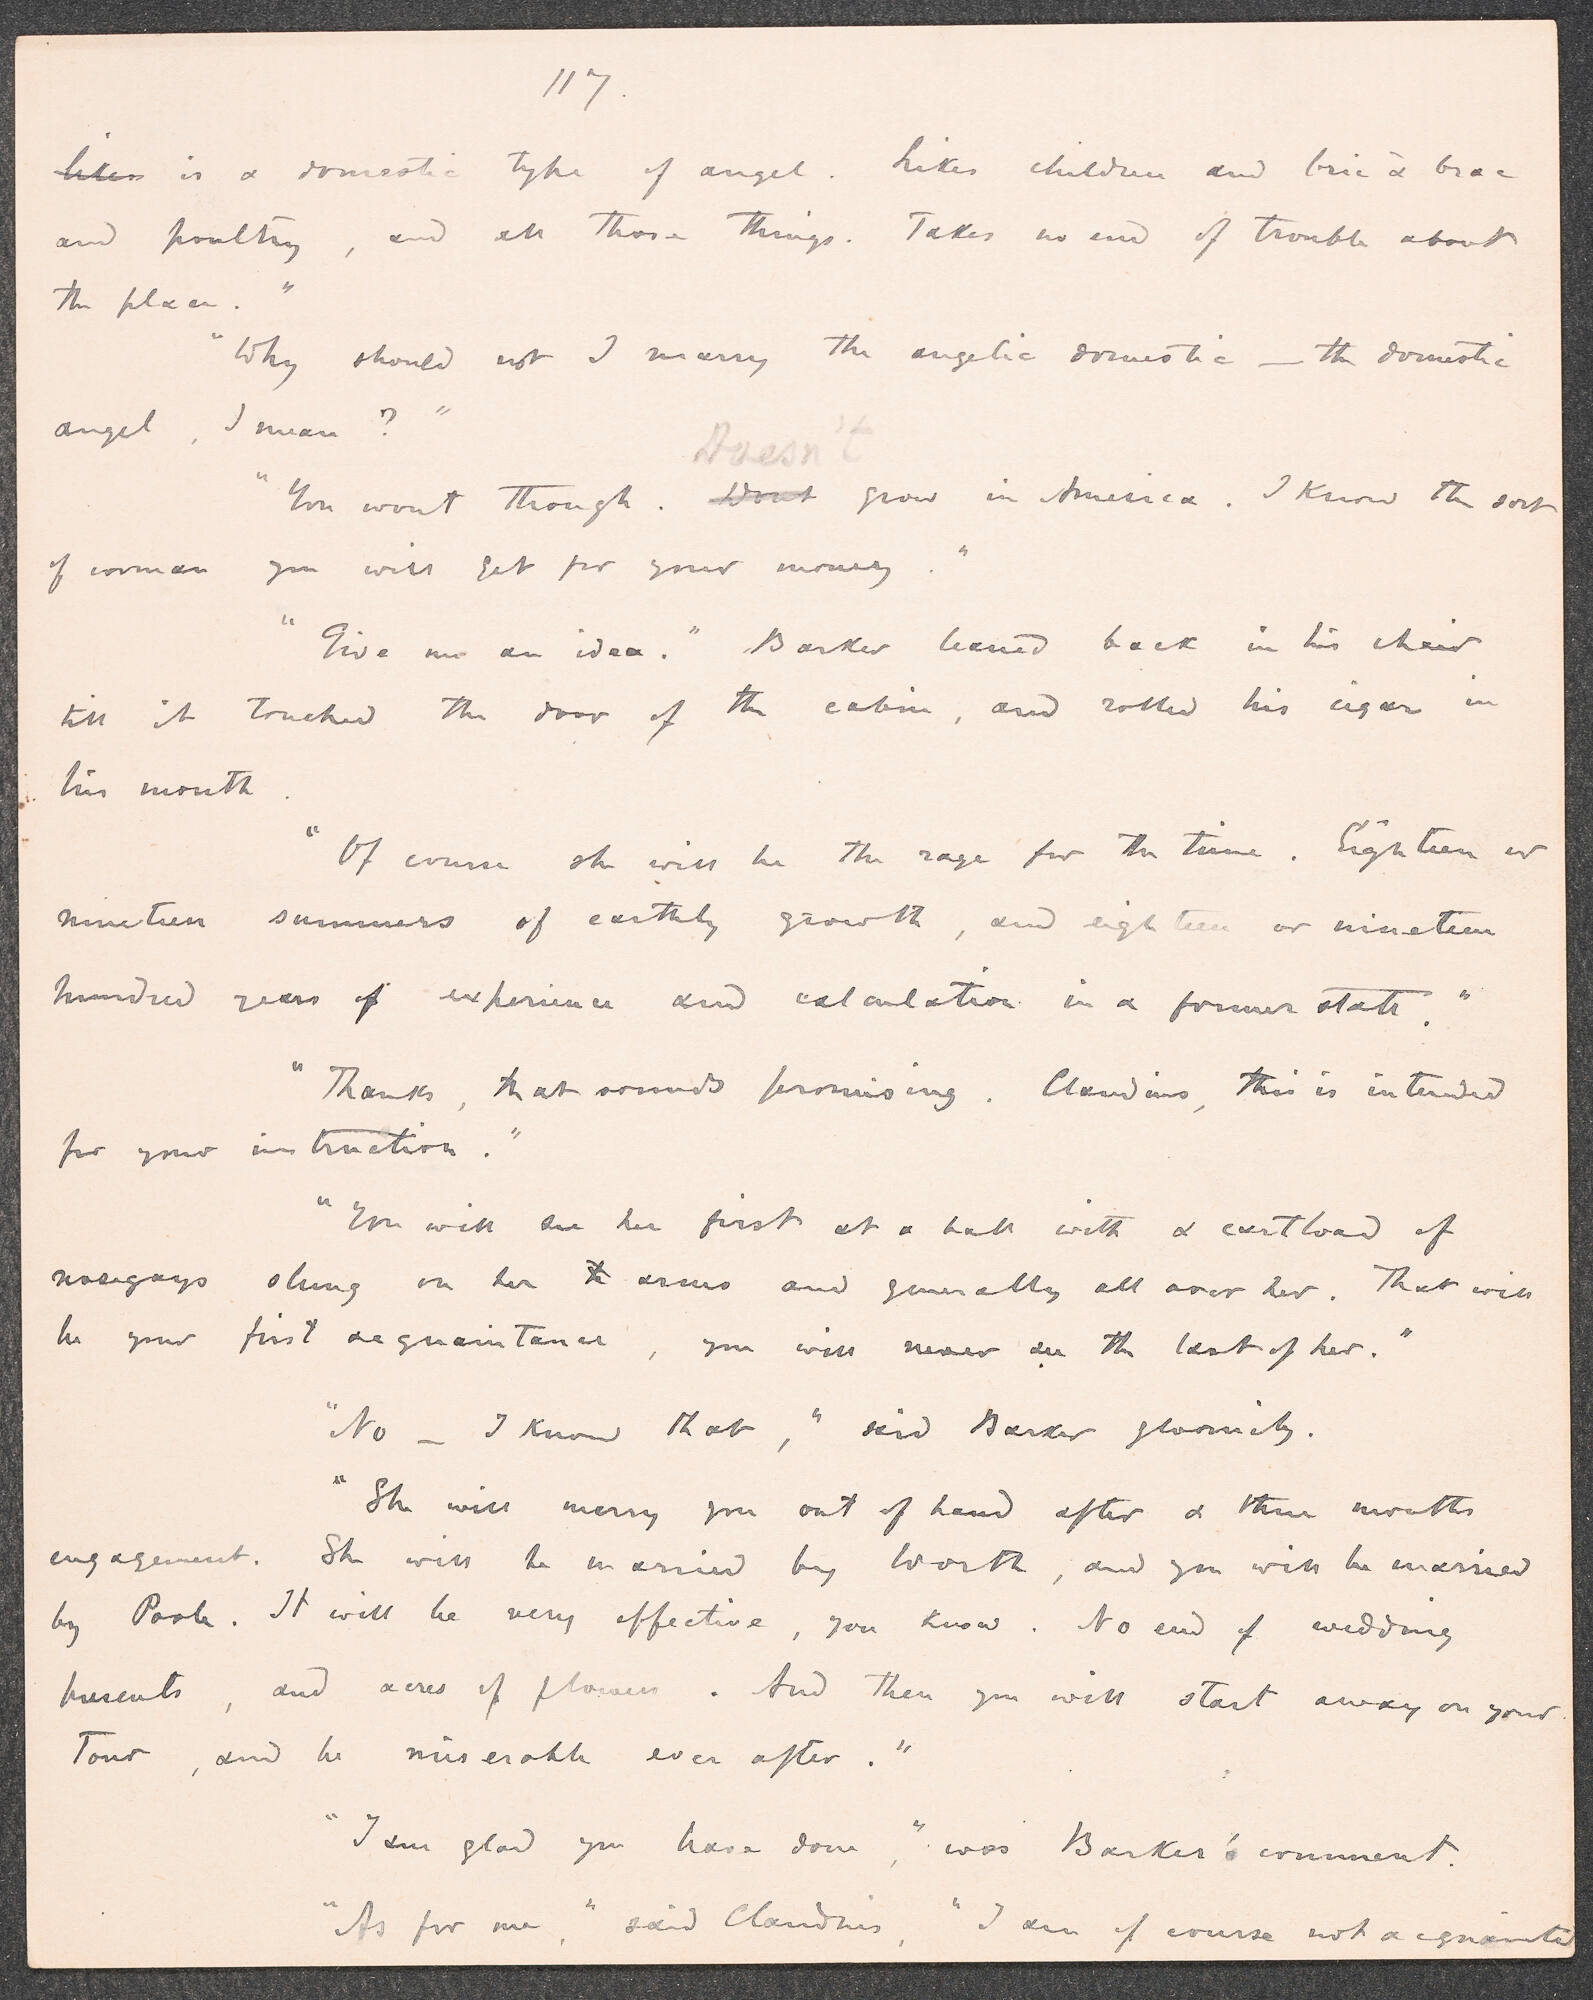 117.
likes is a domestic type of angel. Likes children and bric à brac
and poultry, and all those things. Takes no end of trouble about
the place."
"Why should not I marry the angelic domestic — the domestic
angel, I mean?"
Doesn't
"You wont though. Dont grow in America. I know the sort
of woman you will get for your money."
"Give me an idea." Barker leaned back in his chair
till it touched the door of the cabin, and rolled his cigar in
his mouth.
"Of course she will be the rage for the time. Eighteen or
nineteen summers of earthly growth, and eighteen or nineteen
hundred years of experience and calculation in a former state."
"Thanks, that sounds promising. Claudius, this is intended
for your instruction."
"You will see her first at a ball with a cartload of
nosegays slung on her arms and generally all over her. That will
be your first acquaintance, you will never see the last of her."
"No — I know that," said Barker gloomily.
"She will marry you out of hand after a three months
engagement. She will be married by Worth, and you will be married
by Poole. It will be very effective, you know. No end of wedding
presents, and acres of flowers. And then you will start away on your
Tour, and be miserable ever after."
"I am glad you have done," was Barker's comment.
"As for me," said Claudius, "I am of course not acquainted